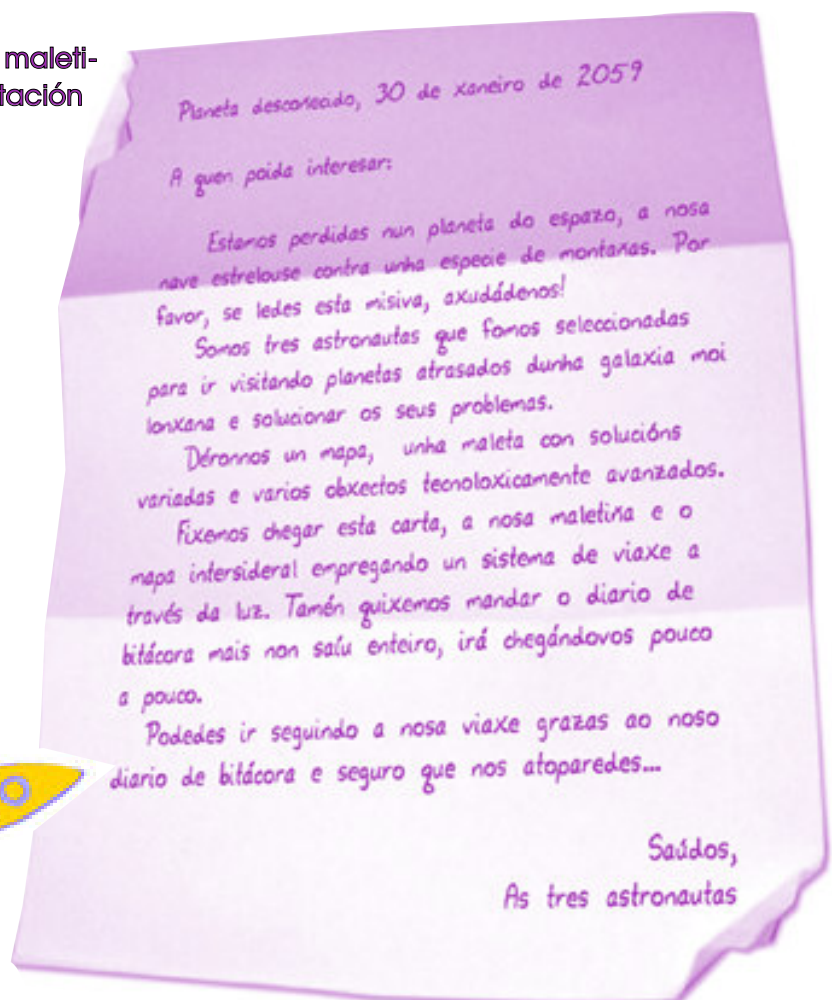 maleti-
tación
Planeta desconecido, 30 de xaneiro de 2059
A quen poida interesar:
Estamos perdidas nun planeta do espazo, a nosa
nave estrelouse contra unha especie de montañas. Por
favor, se ledes esta misiva, axudádenos!
Somos tres astronautas que fomos seleccionadas
para ir visitando planetas atrasados dunha galaxia moi
lonxana e solucionar os seus problemas.
Déronnos un mapa, unha maleta con solucións
variadas e varios obxectos tecnoloxicamente avanzados.
Fixemos chegar esta carta, a nosa maletiña e o
mapa intersideral empregando un sistema de viaxe a
través da luz. Tamén quixemos mandar o diario de
bitácora mais non saíu enteiro, irá chegándovos pouco
a pouco.
Podedes ir seguindo a nosa viaxe grazas ao noso
diario de bitácora e seguro que nos atoparedes...
Saúdos,
As tres astronautas